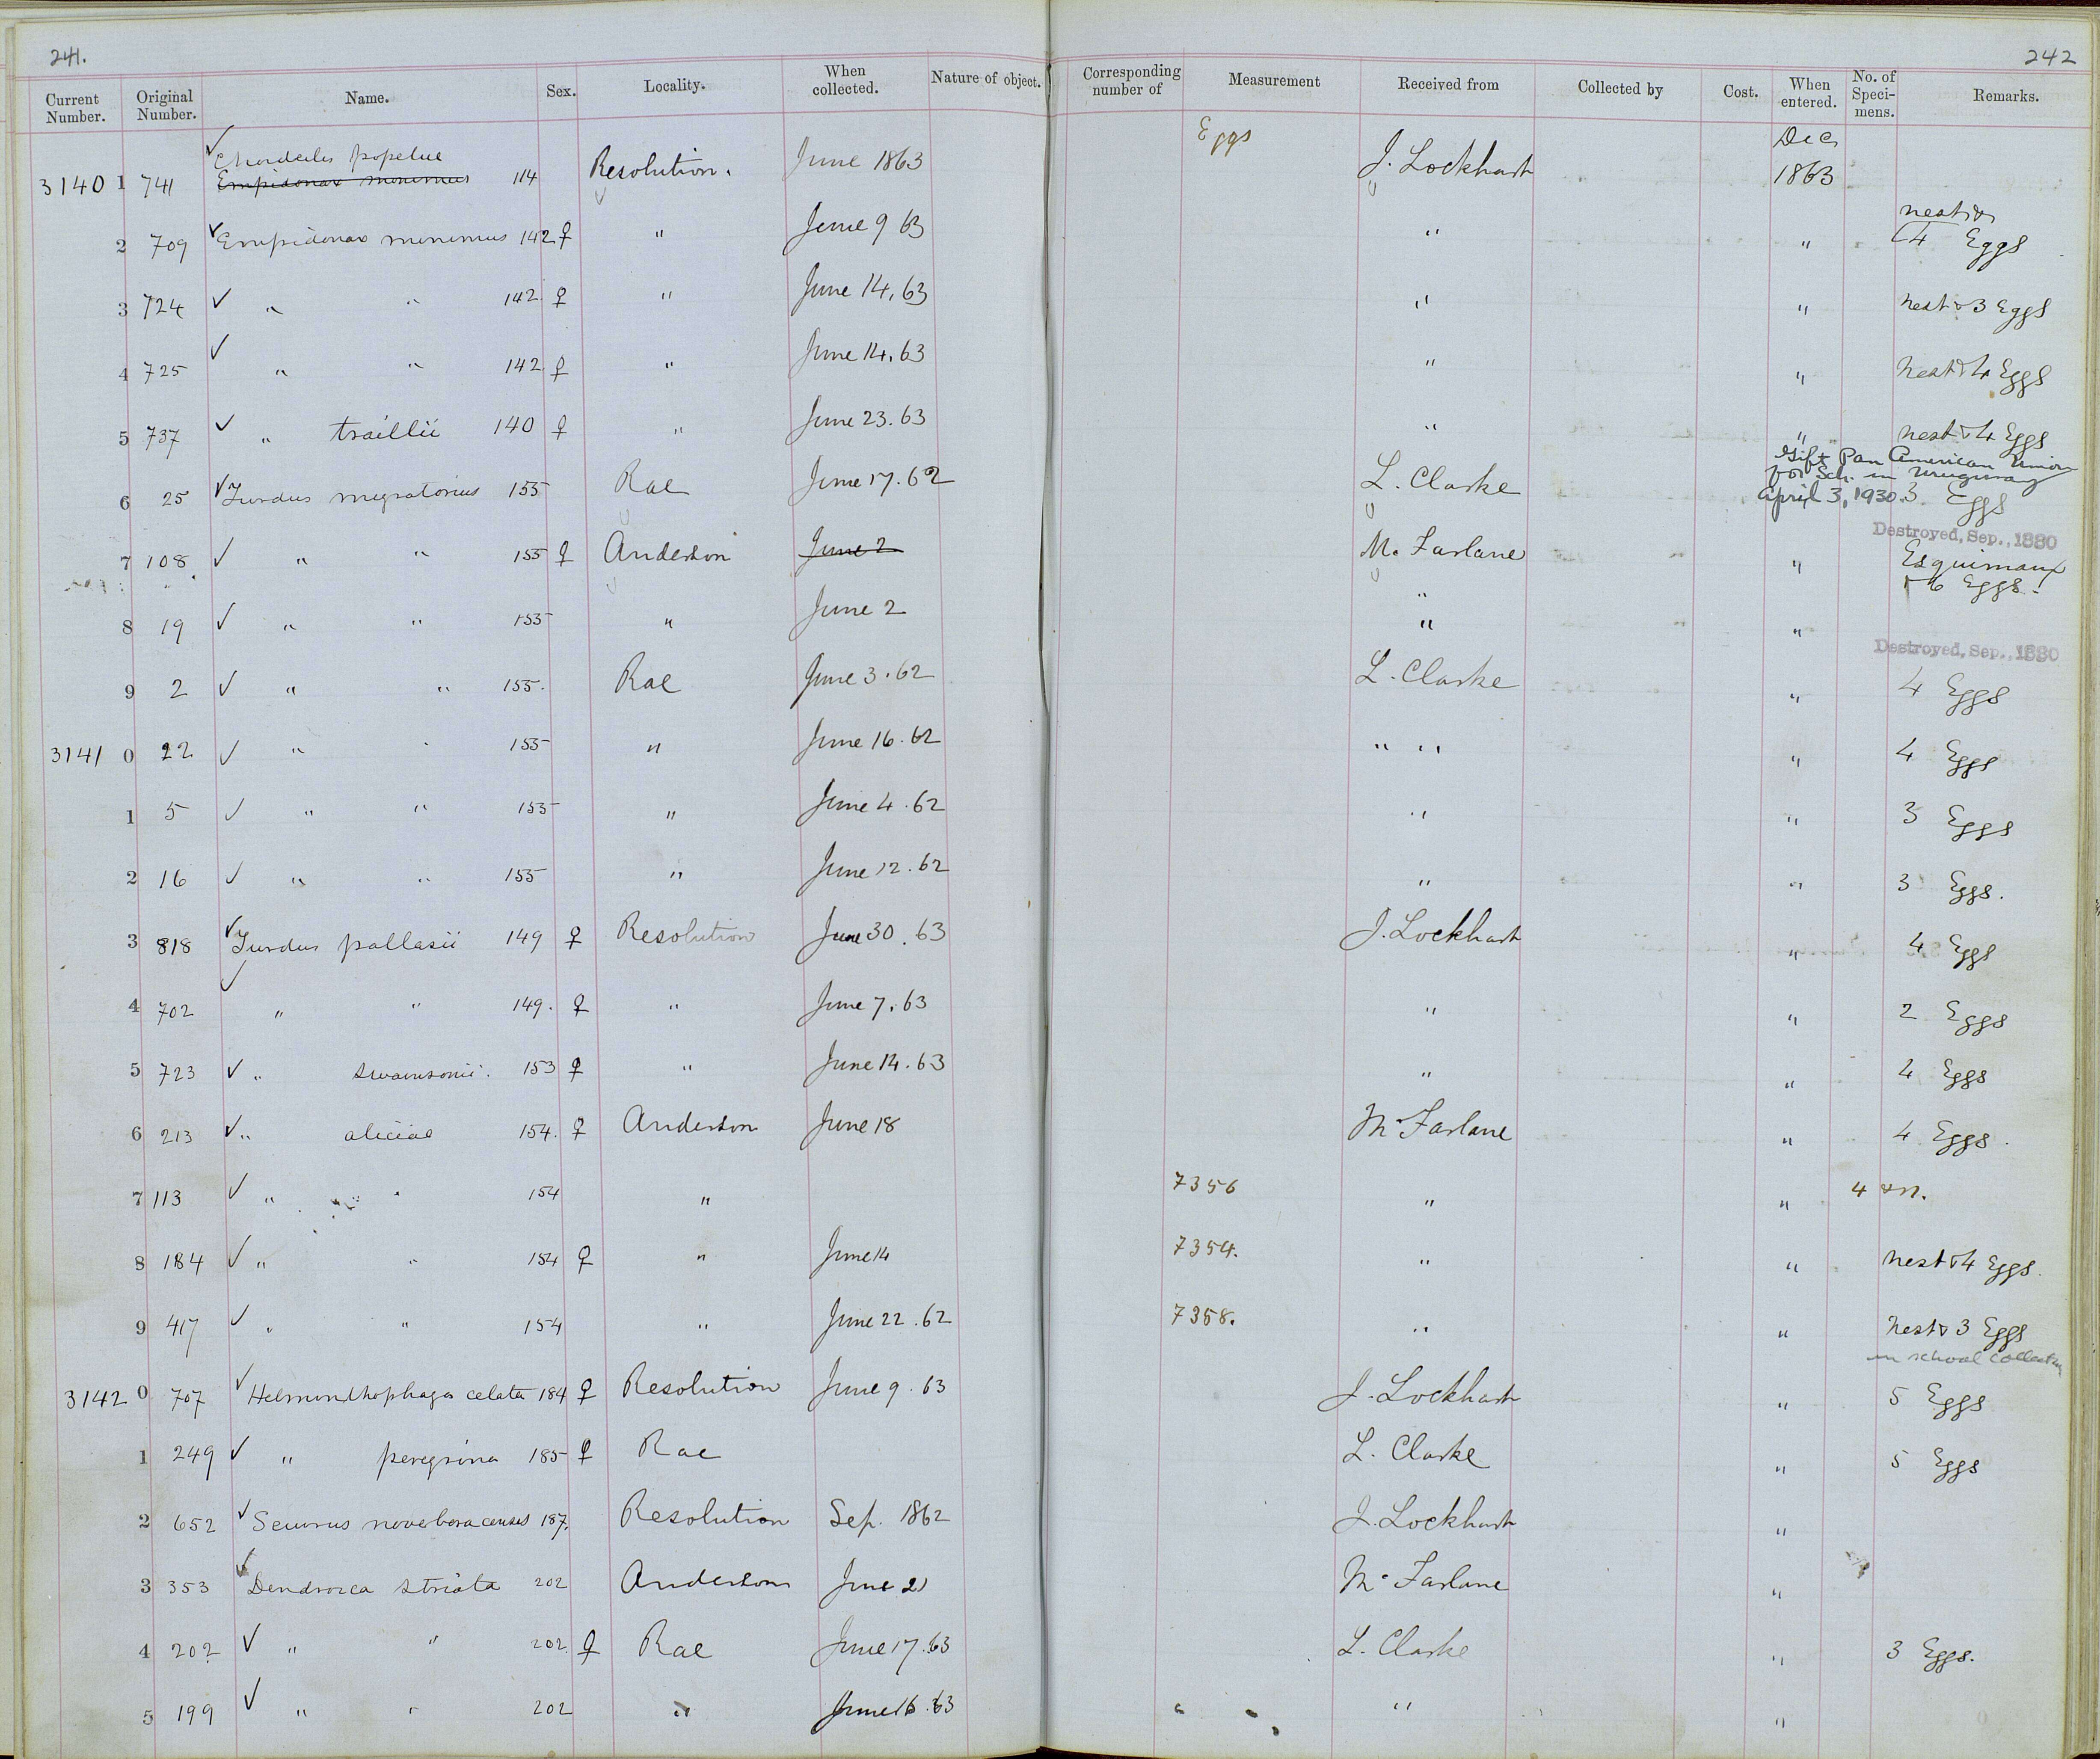 241.
242
Current Number. Original Number. Name. Sex. Locality. When collected. Nature of object. Corresponding number of Measurement Received from Collected by Cost. When entered. No. of Speci-mens. Remarks.
Chordeiles popetue
31401 741 Empidonax minimus 114 Resolution. June 1863 Eggs J. Lockhart Dec 1863
2 709 Empidonax minimus 142 ♀ " June 9 63 " " nest & 4 Eggs
3 724 " " 142 ♀ " June 14, 63 " " nest & 3 Eggs
4 725 " " 142 ♀ " June 14, 63 " " nest & 4 Eggs
5 737 " traillii 140 ♀ " June 23. 63 " " nest & 4 Eggs
Gift Pan American Union
for Sch. in Uruguay
April 3, 1930.
6 25 Turdus migratorius 155 Rae June 17. 62 L. Clarke 3 Eggs
Destroyed, Sep., 1880
7 108 " " 155 ♀ Anderson June 2 M. Farlane " Esquimaux
6 Eggs.
8 19 " " 155 " June 2 " "
Destroyed, Sep., 1880
9 2 " " 155. Rae June 3. 62 L. Clarke " 4 Eggs
31410 22 " " 155 " June 16. 62 " " " 4 Eggs
1 5 " " 155 " June 4. 62 " " 3 Eggs
2 16 " " 155 " June 12. 62 " " 3 Eggs.
3 818 Turdus pallasii 149 ♀ Resolution June 30. 63 J. Lockhart " 4 Eggs
4 702 " " 149. ♀ " June 7. 63 " " 2 Eggs
5 723 " swainsonii. 153 ♀ " June 14. 63 " " 4 Eggs
6 213 " aliciae 154. ♀ Anderson June 18 McFarlane " 4 Eggs.
7 113 " " 154 " 7356 " " 4 & n.
8 184 " " 154 ♀ " June 14 7354. " " nest & 4 Eggs.
9 417 " " 154 " June 22. 62 7358. " " nest & 3 Eggs
in school collection
31420 707 Helminthophaga celata 184 ♀ Resolution June 9. 63 J. Lockhart " 5 Eggs
1 249 " peregrina 185 ♀ Rae L. Clarke " 5 Eggs
2 652 Seiurus noveboracensis 187. Resolution Sep. 1862 J. Lockhart "
3 353 Dendroica striata 202 Anderson June 21 McFarlane "
4 202 " " 202. ♀ Rae June 17. 63 L. Clarke " 3 Eggs.
5 199 " " 202 " June 16. 63 " "